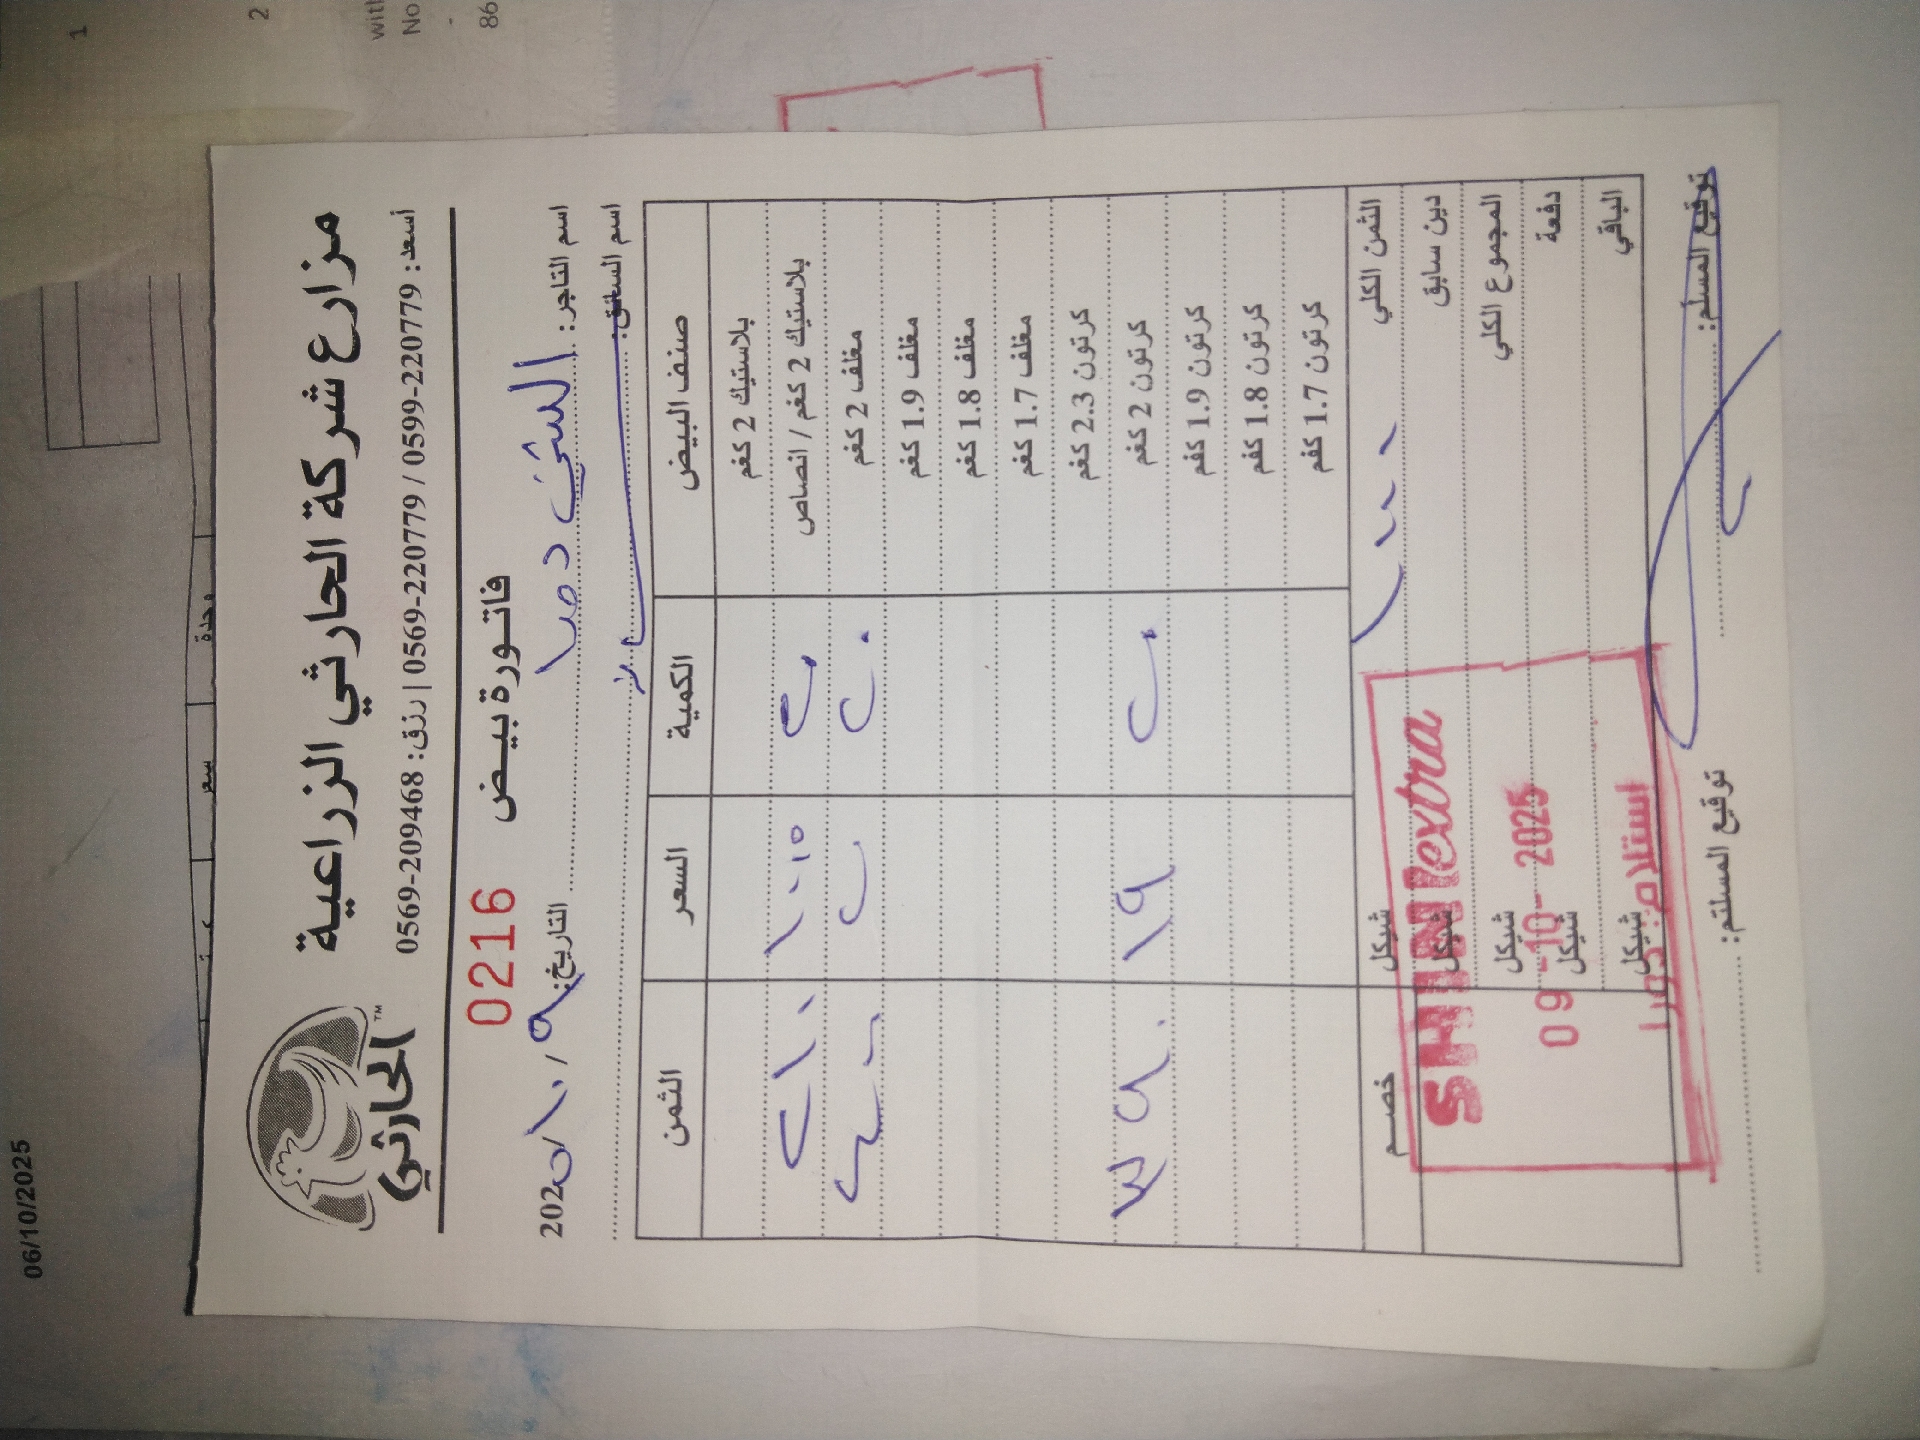 06/10/2025
1
2
with
No
-
86
وحدة
سعر
مزارع شركة الحارثي الزراعية
أسعد: 0599-220779 / 0569-220779 | رزق: 0569-209468
الحارثي™
فاتورة بيض
0216
اسم التاجر: الشني دورا
التاريخ: ٩ / ١٠ / 202٥
اسم السائق:
صنف البيض الكمية السعر الثمن
بلاستيك 2 كغم
بلاستيك 2 كغم / انصاص
مغلف 2 كغم ٢٠ ٢٠ ٤٠٠
مغلف 1.9 كغم
مغلف 1.8 كغم
مغلف 1.7 كغم
كرتون 2.3 كغم
كرتون 2 كغم ٢٠ ١٩ ٣٨٠
كرتون 1.9 كغم
كرتون 1.8 كغم
كرتون 1.7 كغم
الثمن الكلي شيكل خصم
دين سابق شيكل
المجموع الكلي شيكل
دفعة شيكل
الباقي شيكل
SHINI extra
09-10-2025
استلام: دورا
توقيع المسلم:
توقيع المستلم: